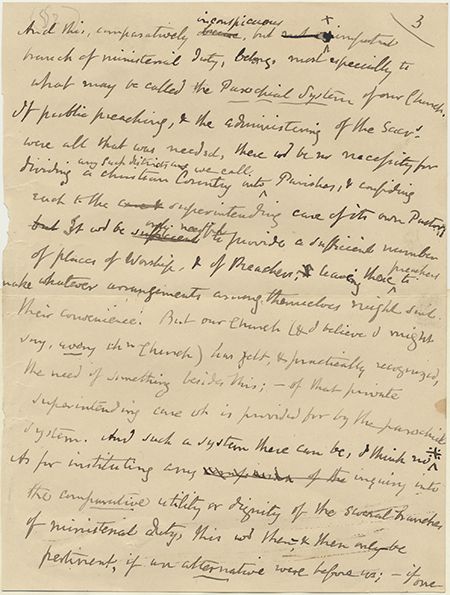 3
inconspicuous *
And this, comparatively obscure, but not important
branch of ministerial duty, belongs most especially to
what may be called the Parochial System of our Church.
If public preaching, & the administering of the Sacrts
were all that was needed, there wd be no necessity for
any such districts as we call
dividing a christian Country into Parishes, & confiding
each to the superintending care of its own Pastor;
only needful
but It wd be sufficient to provide a sufficient number
of places of Worship, & of Preachers; & leaving these to
preachers
make whatever arrangements among themselves might suit
their convenience. But our Church (& I believe I might
say, every chn Church) has felt, & practically recognized,
the need of something besides this; – of that private
superintending care wh is provided for by the parochial
system. And such a system there can be, I think no *
As for instituting any of the inquiry into
the comparative utility or dignity of the several branches
of ministerial duty, this wd then & then only be
pertinent, if an alternative were before us; – if one